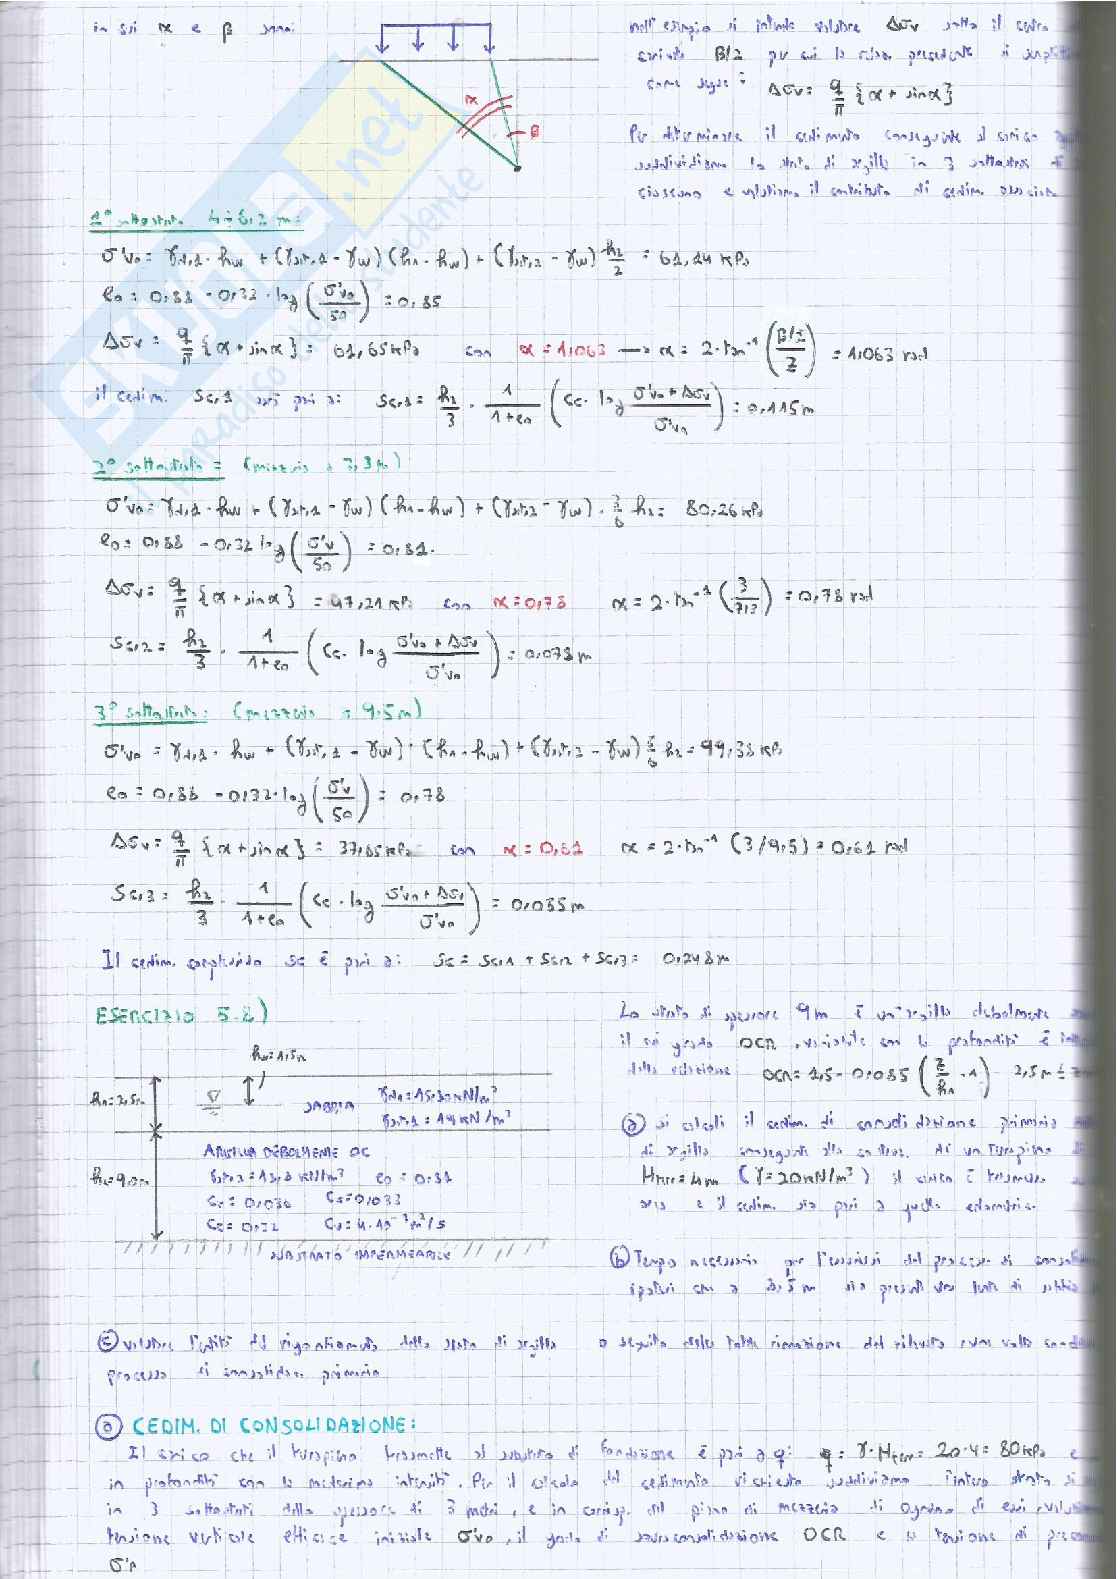 in cui α e β sono:
α
β
nell'esempio si intende valutare Δσv sotto il centro
B/2 per cui la
come segue: Δσv = q/π {α + sinα}
Per determinare il cedimento conseguente al carico
suddividiamo lo strato di argilla in 3 sottostrati di
ciascuno e valutiamo il contributo di cedim.
SKUOLA.net
il paradiso dello studente
1° sottostrato 4 ÷ 6,2 m:
σ'v0 = γd,1 · hw + (γsat,1 - γw)(h1 - hw) + (γsat,2 - γw) h2/2 = 61,14 kPa
e0 = 0,88 - 0,32 · log (σ'v0/50) = 0,85
Δσv = q/π {α + sinα} = 61,65 kPa con α = 1,063 → α = 2 · tan⁻¹ (B/2 / Z) = 1,063 rad
il cedim. Sc,1 sarà pari a: Sc,1 = h2/3 · 1/(1+e0) (Cc · log (σ'v0 + Δσv)/σ'v0) = 0,115 m
2° sottostrato = (mezzeria a 7,3 m)
σ'v0 = γd,1 · hw + (γsat,1 - γw)(h1 - hw) + (γsat,2 - γw) · 3/6 h2 = 80,26 kPa
e0 = 0,88 - 0,32 log (σ'v/50) = 0,81.
Δσv = q/π {α + sinα} = 47,21 kPa con α = 0,78 α = 2 · tan⁻¹ (3/7,3) = 0,78 rad
Sc,2 = h2/3 · 1/(1+e0) (Cc · log (σ'v0 + Δσv)/σ'v0) = 0,078 m
3° sottostrato: (mezzeria = 9,5 m)
σ'v0 = γd,1 · hw + (γsat,1 - γw) · (h1 - hw) + (γsat,2 - γw) 5/6 h2 = 99,38 kPa
e0 = 0,88 - 0,32 · log (σ'v/50) = 0,78
Δσv = q/π {α + sinα} = 37,65 kPa con α = 0,61 α = 2 · tan⁻¹ (3/9,5) = 0,61 rad
Sc,3 = h2/3 · 1/(1+e0) (Cc · log (σ'v0 + Δσv)/σ'v0) = 0,055 m
Il cedim. complessivo Sc è pari a: Sc = Sc,1 + Sc,2 + Sc,3 = 0,248 m
ESERCIZIO 5.2)
hw = 1,5m
h1 = 2,5m
SABBIA
γd,1 = 15,30 kN/m³
γsat,1 = 19 kN/m³
h2 = 9,0m
ARGILLA DEBOLMENTE OC
e0 = 0,81
Cs = 0,033
Cc = 0,32
SUBSTRATO IMPERMEABILE
Lo strato di spessore 9m è un'argilla debolmente
il cui grado OCR, variabile con la profondità è
dalla relazione OCR = 1,5 - 0,085 (Z/h1 - 1) 2,5m ≤
ⓐ si calcoli il cedim. di consolidazione primaria
di argilla conseguente alla costruz. di un terrapieno di
Hterr = 4m (γ = 20 kN/m³) il carico è trasmesso
e il cedim. sia pari a quello edometrico.
ⓑ Tempo necessario per l'evolversi del processo di
ipotesi che a 8,5 m sia presente una lente di sabbia
ⓒ valutare l'entità del rigonfiamento dello strato di argilla a seguito della totale rimozione del rilevato una volta
processo di consolidaz. primaria
ⓐ CEDIM. DI CONSOLIDAZIONE:
Il carico che il terrapieno trasmette al substrato di fondazione è pari a q: q = γ · Hterr = 20 · 4 = 80 kPa e
in profondità con la medesima intensità. Per il calcolo del cedimento richiesto suddividiamo l'intero strato di
in 3 sottostrati dello spessore di 3 metri, e in corrisp. del piano di mezzeria di ognuno di essi
tensione verticale efficace iniziale σ'v0, il grado di sovraconsolidazione OCR e la tensione di
σ'p